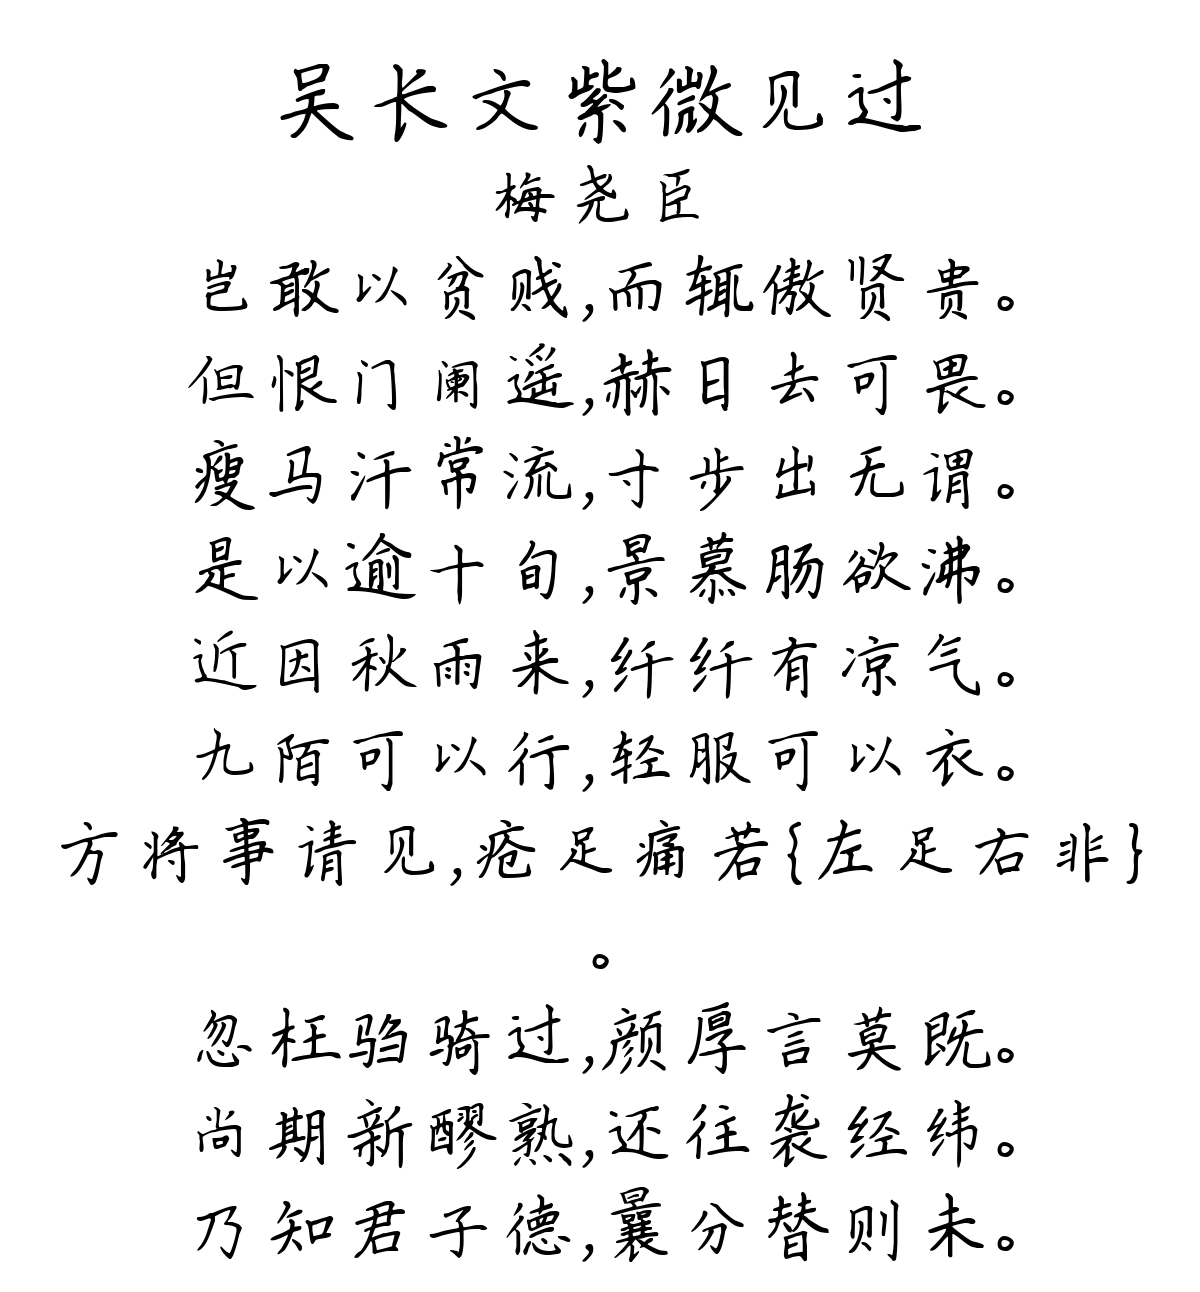 吴长文紫微见过
梅尧臣
岂敢以贫贱,而辄傲贤贵。
但恨门阑遥,赫日去可畏。
瘦马汗常流,寸步出无谓。
是以逾十旬,景慕肠欲沸。
近因秋雨来,纤纤有凉气。
九陌可以行,轻服可以衣。
方将事请见,疮足痛若{左足右非}
。
忽枉驺骑过,颜厚言莫既。
尚期新醪熟,还往袭经纬。
乃知君子德,曩分替则未。